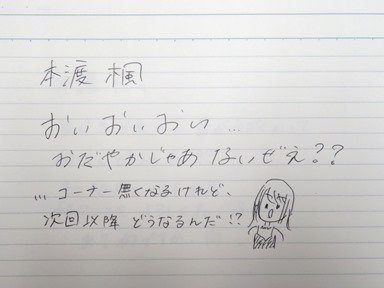 本渡 楓
おいおいおい…
おだやかじゃあ ないぜえ??
… コーナー無くなるけれど、
次回以降 どうなるんだ!?